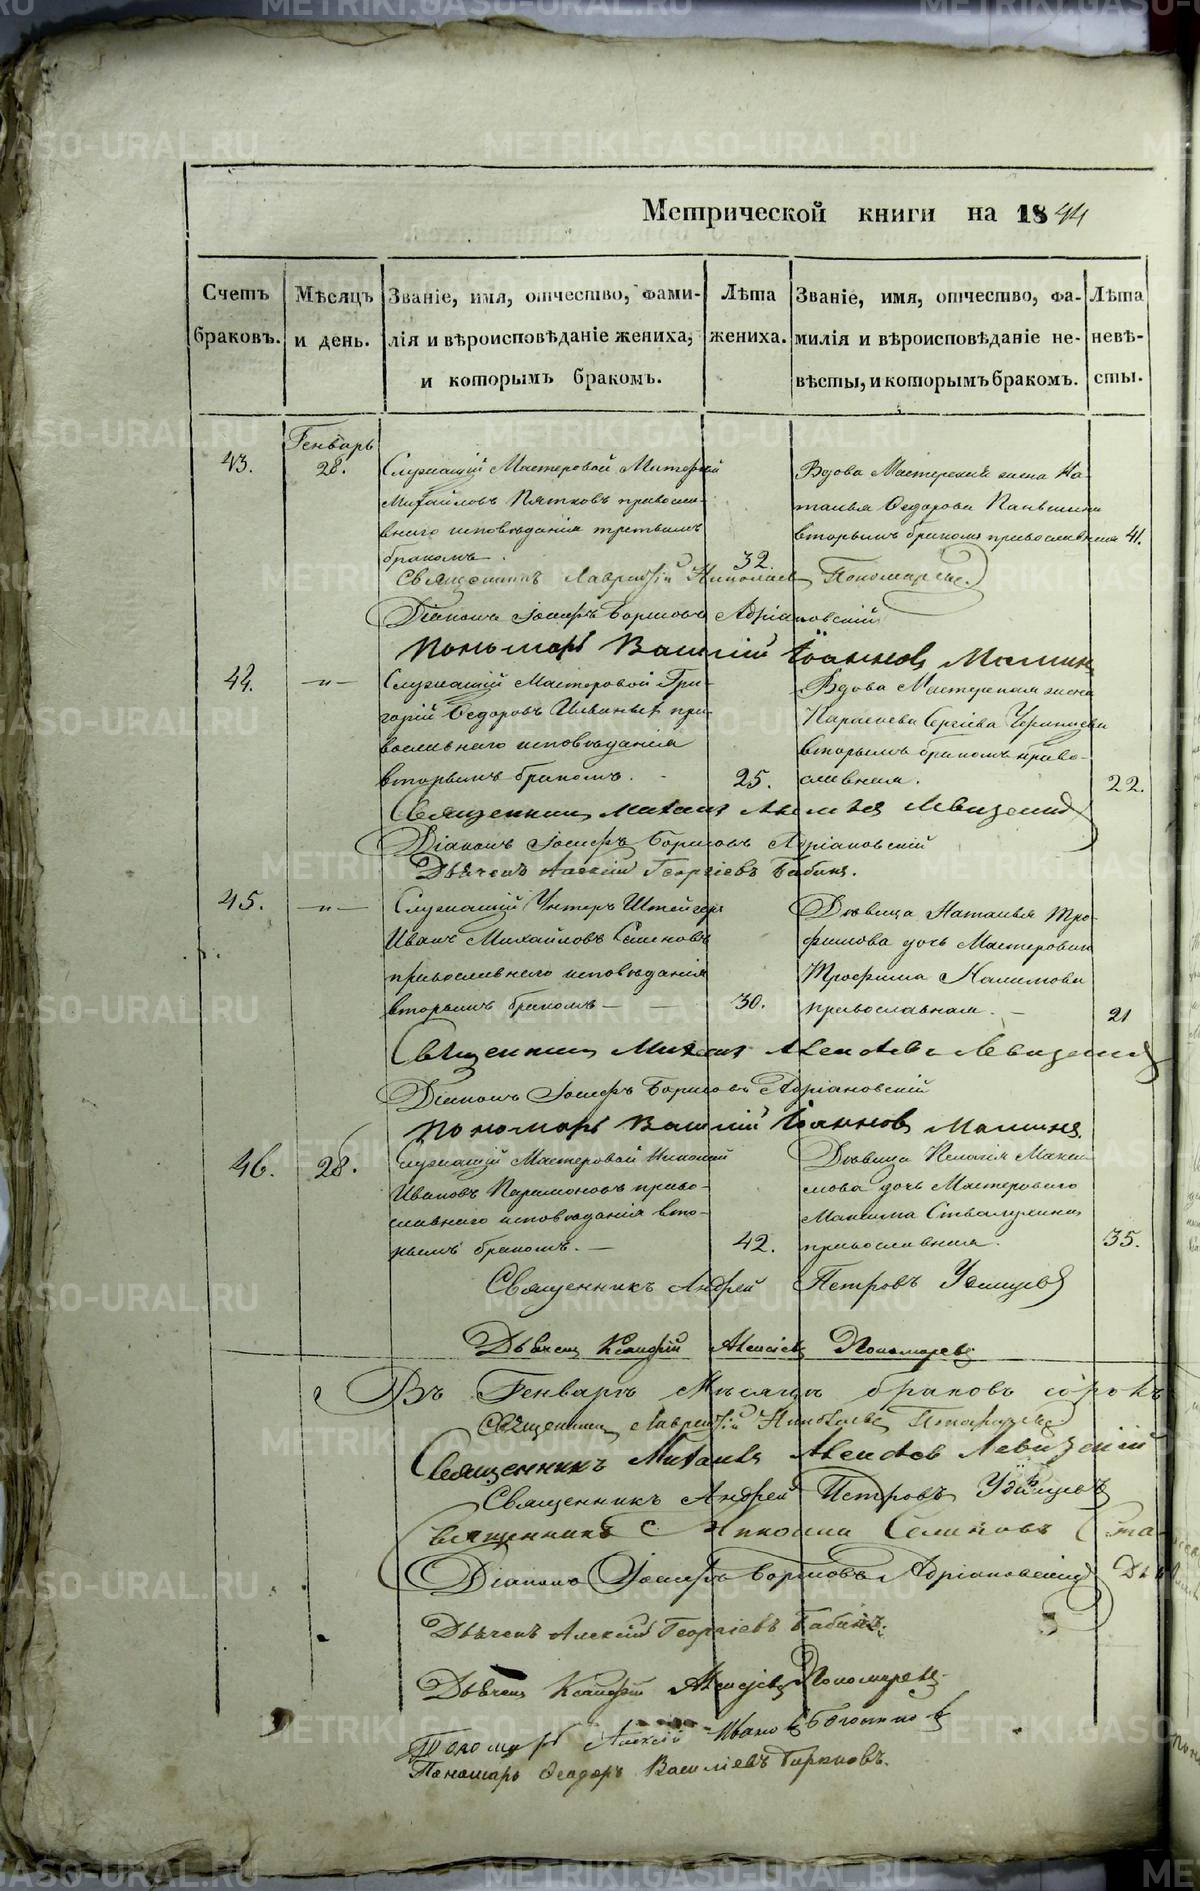 Метрической книги на 1844
Счетъ браковъ.
Мѣсяцъ и день.
Званіе, имя, отчество, фами-
лія и вѣроисповѣданіе жениха,
и которымъ бракомъ.
Лѣта жениха.
Званіе, имя, отчество, фа-
милія и вѣроисповѣданіе не-
вѣсты, и которымъ бракомъ.
Лѣта невѣ-
сты.
Генварь
43.
28.
Служащій Мастеровой
Михайловъ Пятковъ правосла-
внаго исповѣданія третьимъ
бракомъ.
32.
Вдова Мастерская жена На-
талья Ѳедорова
вторымъ бракомъ православная
41.
Священникъ Лаврентій Николаевъ Пономаревъ
Діаконъ Іосифъ Борисовъ Адріановскій
Пономарь Василій Іоанновъ Маминъ
44.
—„—
Служащій Мастеровой Гри-
горій Ѳедоровъ пра-
вославнаго исповѣданія
вторымъ бракомъ.
25.
Вдова Мастерская жена
Параскева Сергіева
вторымъ бракомъ право-
славная.
22.
Священникъ Михаилъ Левицкій
Діаконъ Іосифъ Борисовъ Адріановскій
Дьячекъ Алексій Георгіевъ Бабинъ.
45.
—„—
Служащій Унтеръ Штейгеръ
Иванъ Михайловъ Семеновъ
православнаго исповѣданія
вторымъ бракомъ —
30.
Дѣвица Наталья Тро-
фимова дочь Мастероваго
Трофима
православная. —
21
Священникъ Михаилъ Алексѣевъ Левицкій
Діаконъ Іосифъ Борисовъ Адріановскій
Пономарь Василій Іоанновъ Маминъ.
46.
28.
Служащій Мастеровой Николай
Ивановъ Парамоновъ право-
славнаго исповѣданія вто-
рымъ бракомъ. —
42.
Дѣвица Пелагія Макси-
мова дочь Мастероваго
Максима
православная.
35.
Священникъ Андрей Петровъ Удинцевъ
Дьячекъ Алексіевъ Пономаревъ
Въ Генварѣ Мѣсяцѣ браковъ сорокъ
Священникъ Лаврентій Николаевъ Пономаревъ
Священникъ Михаилъ Алексѣевъ Левицкій
Священникъ Андрей Петровъ Удинцевъ
Священникъ Николай
Діаконъ Іосифъ Борисовъ Адріановскій
Дьячекъ Алексій Георгіевъ Бабинъ.
Дьячекъ Пономаревъ.
Пономарь Алексій Ивановъ
Пономарь Ѳеодоръ Василіевъ
METRIKI.GASO-URAL.RU